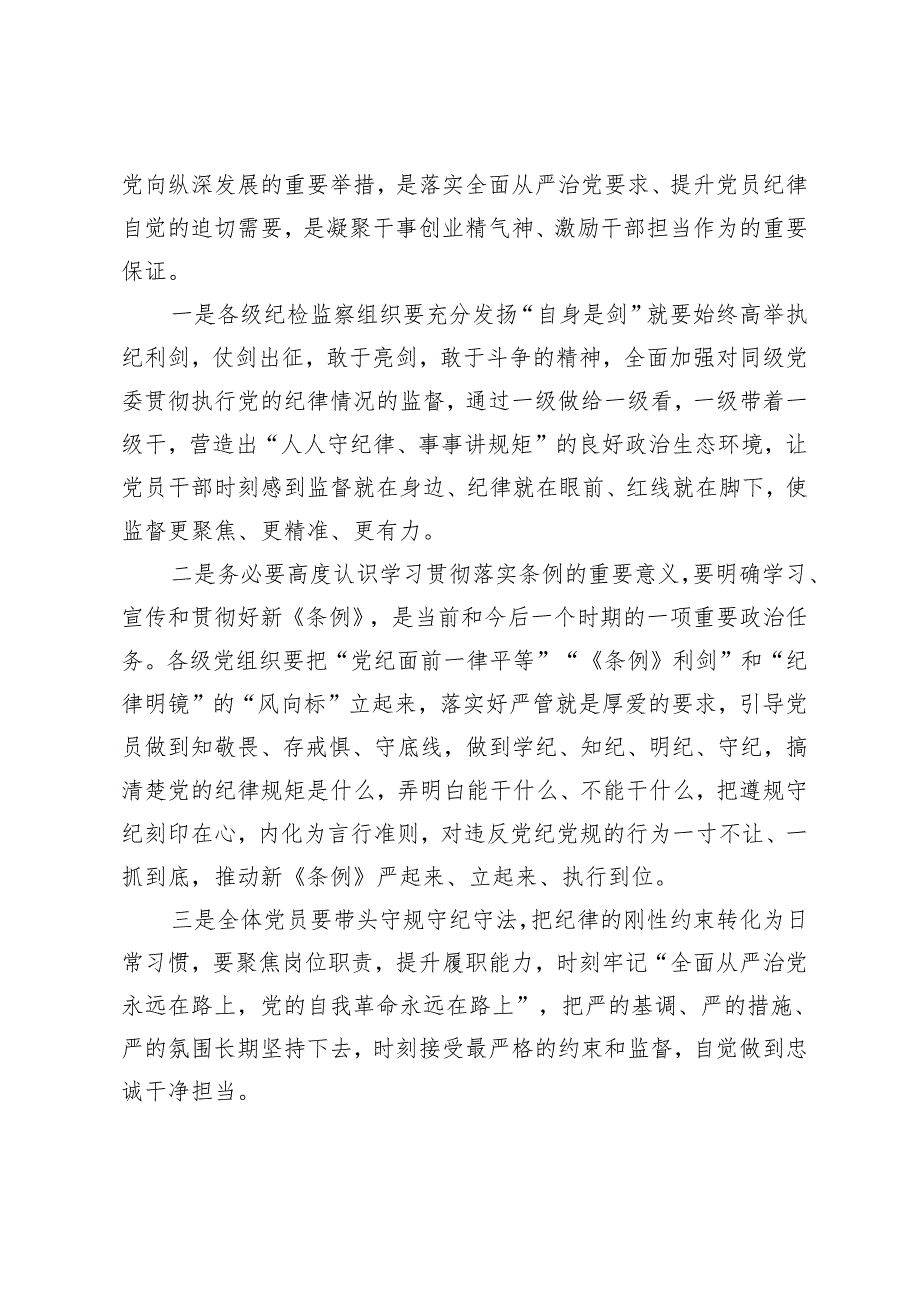 党向纵深发展的重要举措，是落实全面从严治党要求、提升党员纪律
自觉的迫切需要，是凝聚干事创业精气神、激励干部担当作为的重要
保证。
一是各级纪检监察组织要充分发扬“自身是剑”就要始终高举执
纪利剑，仗剑出征，敢于亮剑，敢于斗争的精神，全面加强对同级党
委贯彻执行党的纪律情况的监督，通过一级做给一级看，一级带着一
级干，营造出“人人守纪律、事事讲规矩”的良好政治生态环境，让
党员干部时刻感到监督就在身边、纪律就在眼前、红线就在脚下，使
监督更聚焦、更精准、更有力。
二是务必要高度认识学习贯彻落实条例的重要意义，要明确学习、
宣传和贯彻好新《条例》，是当前和今后一个时期的一项重要政治任
务。各级党组织要把“党纪面前一律平等”“《条例》利剑”和“纪
律明镜”的“风向标”立起来，落实好严管就是厚爱的要求，引导党
员做到知敬畏、存戒惧、守底线，做到学纪、知纪、明纪、守纪，搞
清楚党的纪律规矩是什么，弄明白能干什么、不能干什么，把遵规守
纪刻印在心，内化为言行准则，对违反党纪党规的行为一寸不让、一
抓到底，推动新《条例》严起来、立起来、执行到位。
三是全体党员要带头守规守纪守法，把纪律的刚性约束转化为日
常习惯，要聚焦岗位职责，提升履职能力，时刻牢记“全面从严治党
永远在路上，党的自我革命永远在路上”，把严的基调、严的措施、
严的氛围长期坚持下去，时刻接受最严格的约束和监督，自觉做到忠
诚干净担当。